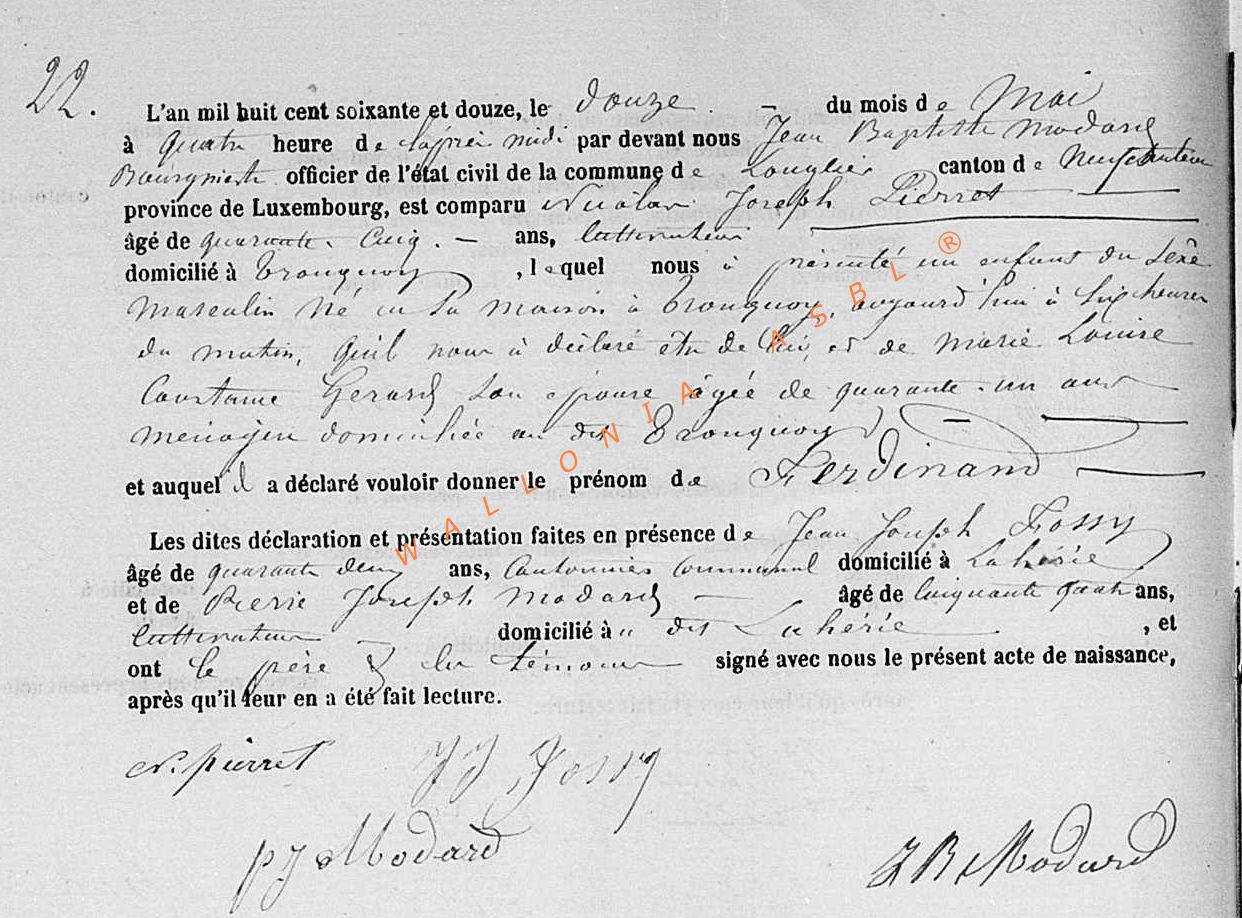 22.
L'an mil huit cent soixante et douze, le douze du mois de Mai
à quatre heure de l'après midi par devant nous Jean Baptiste Modard
Bourgmestre officier de l'état civil de la commune de Longlier canton de Neufchateau
province de Luxembourg, est comparu Nicolas Joseph Pierret
âgé de quarante-cinq ans, cultivateur
domicilié à Tronquoy, lequel nous à présenté un enfant du sexe
masculin né en sa maison à Tronquoy, aujourd'hui à six heures
du matin, qu'il nous à déclaré être de lui, et de Marie Louise
Constance Gerard son épouse âgée de quarante-un ans
menagère domiciliée au dit Tronquoy
et auquel il a déclaré vouloir donner le prénom de Ferdinand
Les dites déclaration et présentation faites en présence de Jean Joseph Fossy
âgé de quarante deux ans, Cantonnier communal domicilié à Lahérie
et de Pierre Joseph Modard âgé de cinquante quatre ans,
cultivateur domicilié à dit Lahérie, et
ont le père & les témoins signé avec nous le présent acte de naissance,
après qu'il leur en a été fait lecture.
N. Pierret JJ Fossy
PJ Modard JB Modard
WALLONIA ASBL ®